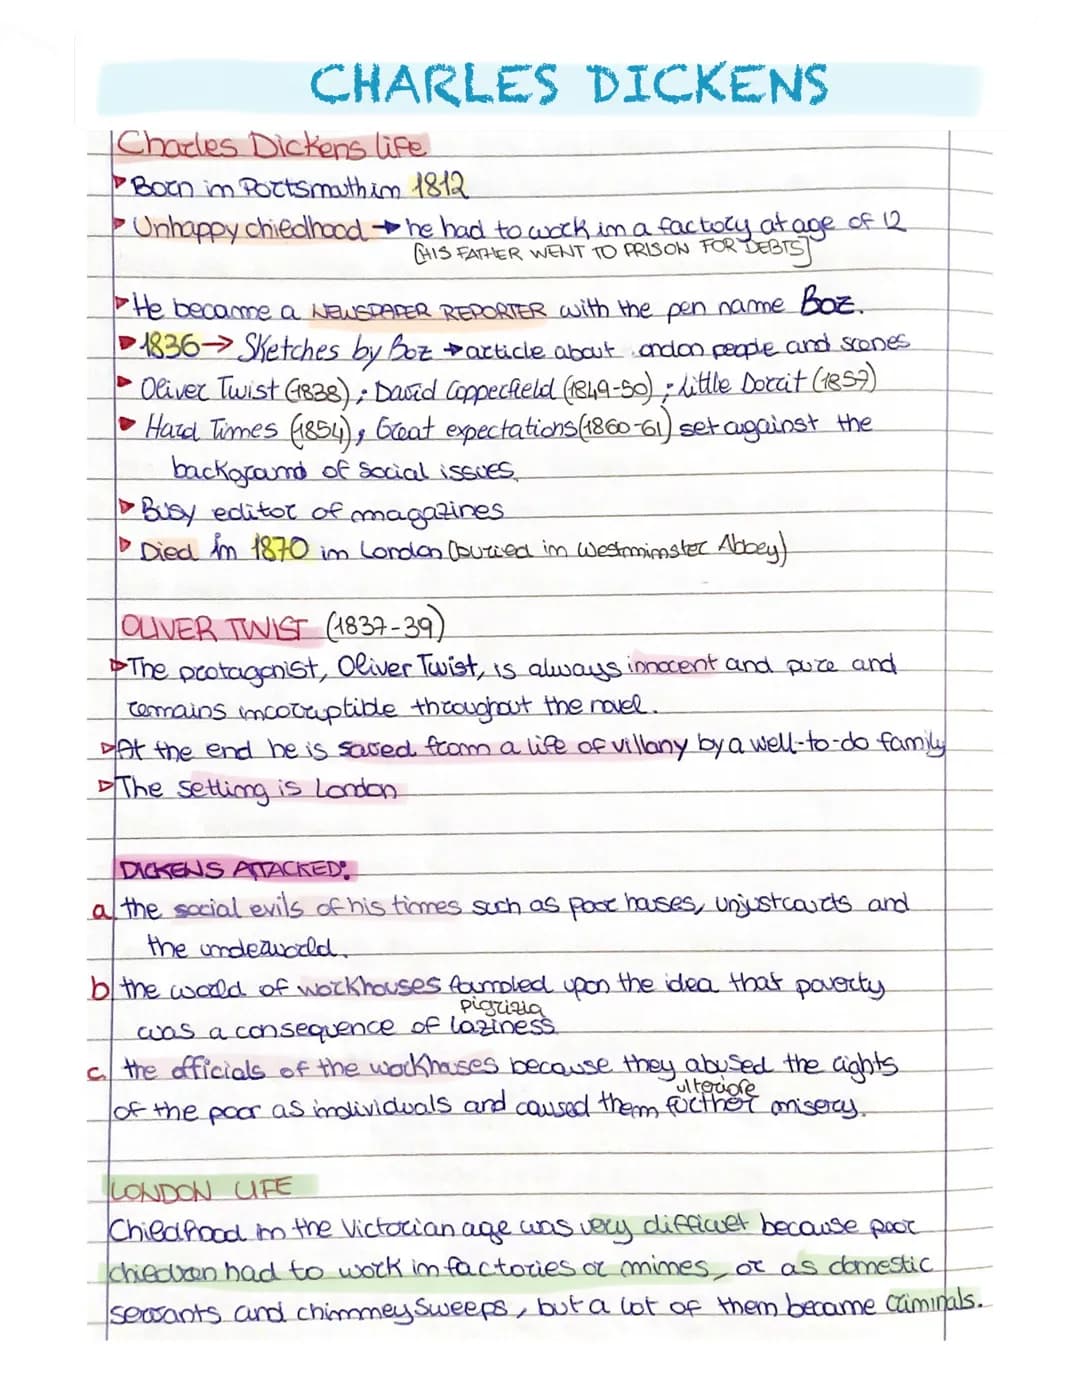 CHARLES DICKENS
Charles Dickens life
Born in Portsmouth in 1812
Unhappy childhood → he had to work in a factory at age of 12
(HIS FATHER WENT TO PRISON FOR DEBTS)
He became a NEWSPAPER REPORTER with the pen name Boz.
1836 → Sketches by Boz → article about ondon people and scenes
Oliver Twist (1838); David Copperfield (1849-50); Little Dorrit (1857)
Hard Times (1854), Great expectations (1860-61) set against the
background of social issues.
Busy editor of magazines
Died in 1870 in London (buried in Westminster Abbey)
OLIVER TWIST (1837-39)
The protagonist, Oliver Twist, is always innocent and pure and
remains incorruptible throughout the novel.
At the end he is saved from a life of villany by a well-to-do family
The setting is London
DICKENS ATTACKED:
a the social evils of his times such as poor houses, unjust courts and
the underworld.
b the world of workhouses founded upon the idea that poverty
pigrizia
was a consequence of laziness
c the officials of the workhouses because they abused the rights
ulteriore
of the poor as individuals and caused them further misery.
LONDON LIFE
Childhood in the Victorian age was very difficult because poor
children had to work in factories or mines, or as domestic
servants and chimney sweeps, but a lot of them became criminals.